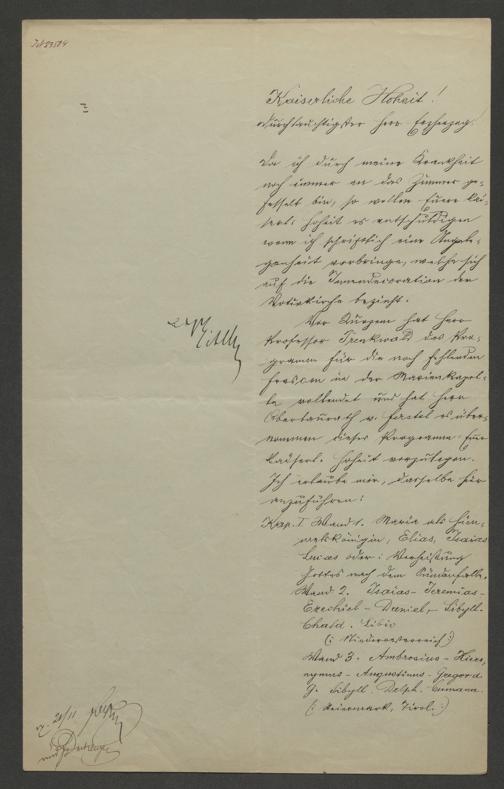 Kaiserliche Hoheit!
Durchlauchtigster Herr Erzherzog!
Da ich durch meine Krankheit
noch immer an das Zimmer ge-
fesselt bin, so wollen Euere kai-
serl. Hoheit es entschuldigen
wenn ich schriftlich eine Angele-
genheit vorbringe, welche sich
auf die Innendecoration der
Votivkirche bezieht.
Vor Kurzem hat Herr
Professor Trenkwald das Pro-
gramm für die noch fehlenden
Fresken in der Marienkapel-
le vollendet und hat Herr
Oberbaurath v. Ferstel es über-
nommen dieses Programm Euer
kaiserl. Hoheit vorzulegen.
Ich erlaube mir, dasselbe hier
anzuführen:
Kap. I Wand 1. Maria als Him-
melskönigin, Elias, Isaias
Lucas oder: Verheißung
Gottes nach dem Sündenfalle.
Wand 2. Isaias - Jeremias -
Ezechiel - Daniel, - Sibyll.
Chald. Libic
(: Niederoesterreich :)
Wand 3. Ambrosius - Hiero-
nymus - Augustinus - Gregor d.
G. Sibyll. Delph. Cumana.
(: Steiermark, Tirol :)